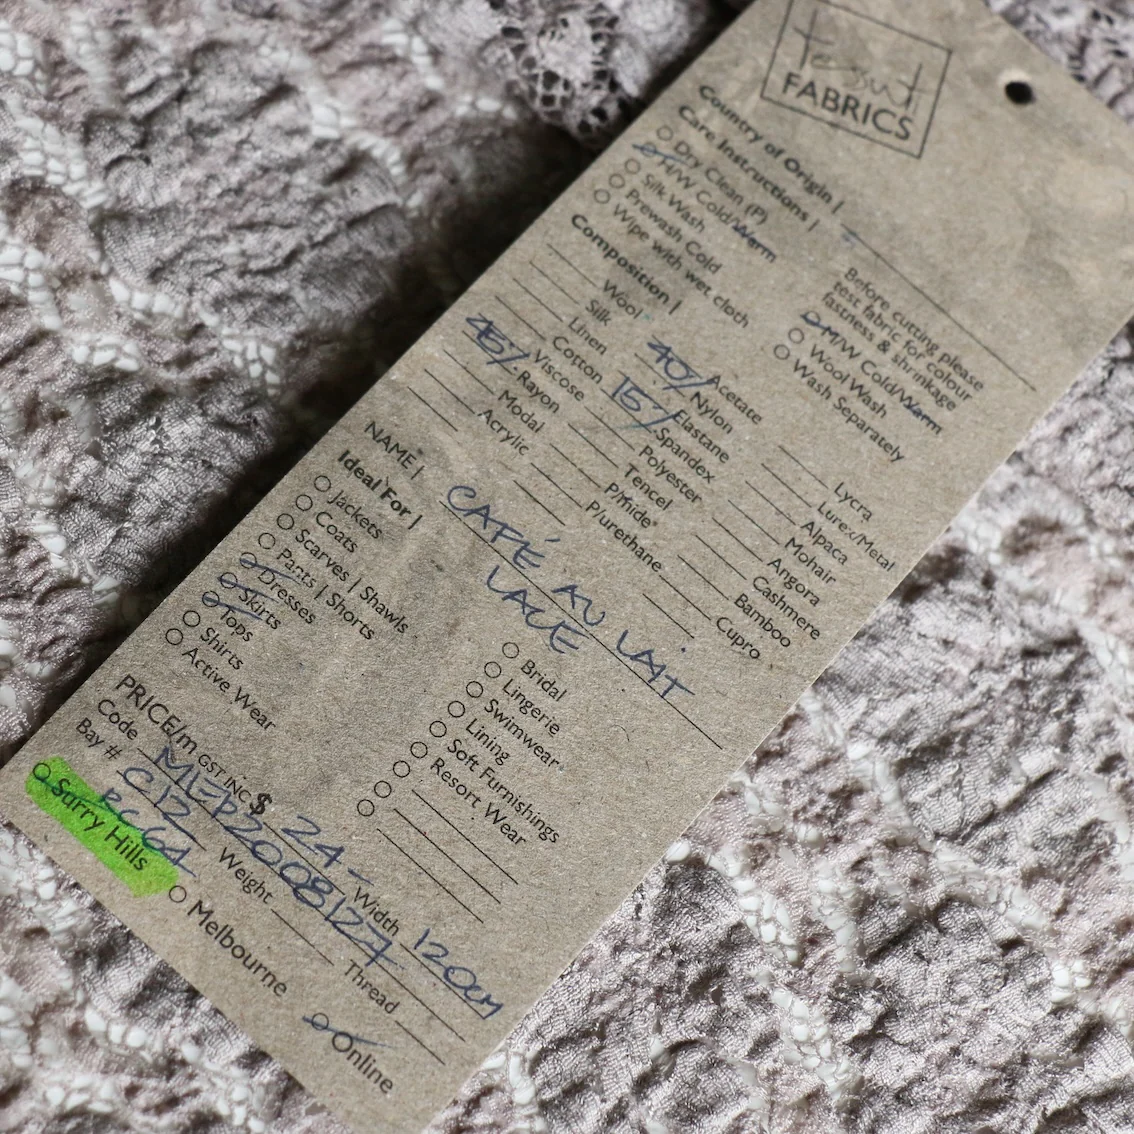 Tessuti
FABRICS
Country of Origin |
Care Instructions |
Dry Clean (P)
H/W Cold/Warm
Silk Wash
Prewash Cold
Wipe with wet cloth
Before cutting please
test fabric for colour
fastness & shrinkage
M/W Cold/Warm
Wool Wash
Wash Separately
Composition |
Wool
Silk
Linen
Cotton
Viscose
45% Rayon
Modal
Acrylic
Acetate
40% Nylon
Elastane
15% Spandex
Polyester
Tencel
P/mide
P/urethane
Lycra
Lurex/Metal
Alpaca
Mohair
Angora
Cashmere
Bamboo
Cupro
NAME | CAFÉ AU LAIT
LACE
Ideal For |
Jackets
Coats
Scarves | Shawls
Pants | Shorts
Dresses
Skirts
Tops
Shirts
Active Wear
Bridal
Lingerie
Swimwear
Lining
Soft Furnishings
Resort Wear
PRICE/m GST INC $ 24 - Width 120cm
Code MEP2008127 Thread
Bay # C12 Weight
Surry Hills
Melbourne
Online